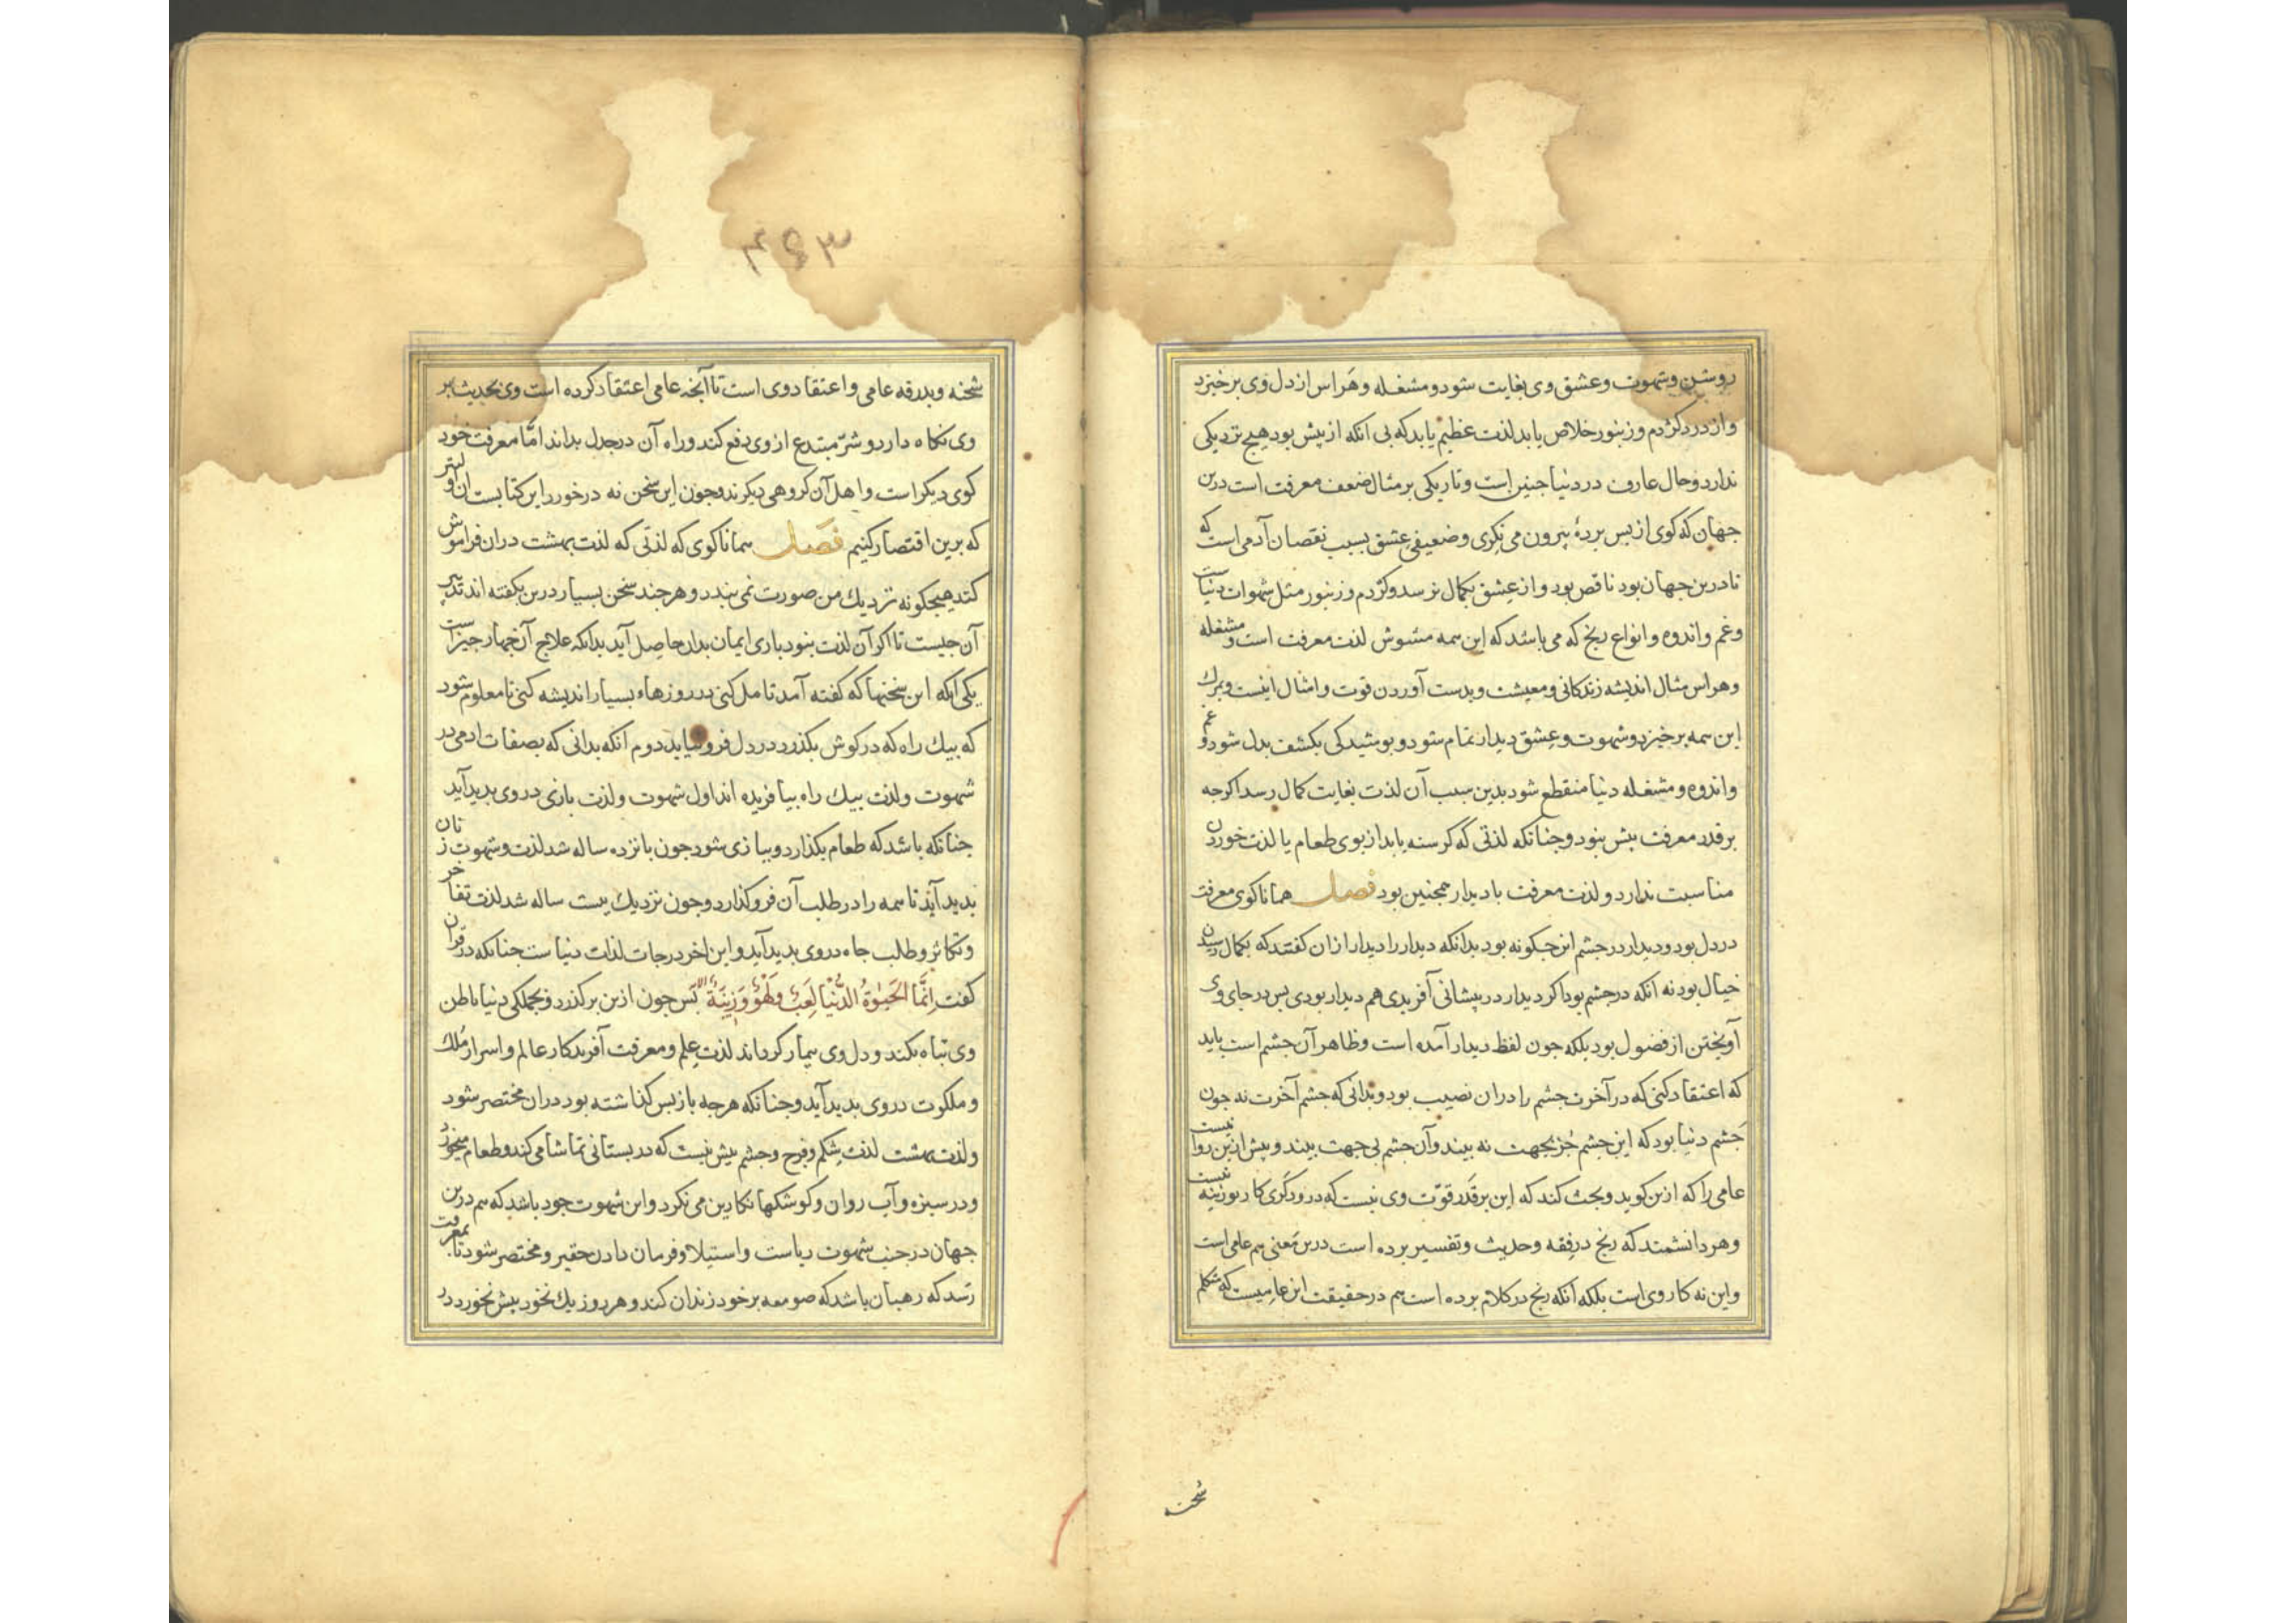 روشن و شهوت و عشق وی بغایت شود و مشغله و هراس از دل وی برخیزد
و از درد کژدم و زنبور خلاص یابد لذت عظیم یابد که بی آنکه از پیش بود هیچ نزدیکی
ندارد و حال عارف در دنیا جنین است و تاریکی بر مثال ضعف معرفت است درین
جهان که کوی از بس پردهٔ بیرون می نکری و ضعیفی عشق بسبب نقصان آدمی است که
تا درین جهان بود ناقص بود و از عشق بکمال نرسد و کژدم و زنبور مثل شهوات دنیاست
و غم و اندوه و انواع رنج که می باشد که این همه مشوش لذت معرفت است و مشغله
و هراس مثال اندیشه زندکانی و معیشت و بدست آوردن قوت و امثال اینست و بمرک
این همه برخیزد و شهوت و عشق دیدار تمام شود و بوشیدکی بکشف بدل شود و غم
و اندوه و مشغله دنیا منقطع شود بدین سبب آن لذت بغایت کمال رسد اکرجه
بر قدر معرفت بیش نبود و جنانکه لذتی که کرسنه یابد از بوی طعام با لذت خوردن
مناسبت ندارد و لذت معرفت با دیدار همجنین بود فصل همانا کوی معرفت
در دل بود و دیدار در جشم این جکونه بود بدانکه دیدار را دیدار ازان کفتند که بکمال رسیدن
خیال بود نه آنکه در جشم بود اکر دیدار در پیشانی آفریدی هم دیدار بودی بس در جای وی
آویختن از فضول بود بلکه جون لفظ دیدار آمده است و ظاهر آن جشم است باید
که اعتقاد کنی که در آخرت جشم را دران نصیب بود و بدانی که جشم آخرت نه جون
جشم دنیا بود که این جشم جز بجهت نه بیند و آن جشم بی جهت بیند و پیش ازین روا نیست
عامی را که ازین کوید و بحث کند که این بر قدر قوّت وی نیست که درودکری کار بوزینه نیست
و هر دانشمند که رنج در فقه و حدیث و تفسیر برده است درین معنی هم عامی است
و این نه کار وی است بلکه آنکه رنج در کلام برده است هم در حقیقت این عامیست که متکلم
شحنه
۴۶۳
شحنه و بدرقه عامی و اعتقاد وی است تا آنجه عامی اعتقاد کرده است وی بحدیث بر
وی نکاه دارد و شرّ مبتدع از وی دفع کند و راه آن در جدل بداند امّا معرفت خود
کوی دیکر است و اهل آن کروهی دیکرند و جون این سخن نه در خورد این کتابست آن اولیتر
که برین اقتصار کنیم فصل همانا کوی که لذتی که لذت بهشت دران فراموش
کند هیجکونه نزدیک من صورت نمی بندد و هرجند سخن بسیار درین بکفته اند تدبیر
آن جیست تا اکر آن لذت نبود باری ایمان بدان حاصل آید بدانکه علاج آن جهار جیز است
یکی آنکه این سخنها که کفته آمد تامل کنی در روزها و بسیار اندیشه کنی تا معلوم شود
که بیک راه که در کوش بکذرد در دل فرو نیاید دوم آنکه بدانی که بصفات آدمی در
شهوت و لذت بیک راه بیافریده اند اول شهوت و لذت بازی در وی بدید آید
جنانکه باشد که طعام بکذارد و ببازی شود جون بانزده ساله شد لذت و شهوت زنان
بدید آید تا همه را در طلب آن فرو کذارد و جون نزدیک بیست ساله شد لذت تفاخر
و تکاثر و طلب جاه در وی بدید آید و این آخر درجات لذات دنیاست جنانکه در قرآن
کفت اِنَّمَا الْحَیٰوةُ الدُّنْیَا لَعِبٌ وَلَهْوٌ وَزِینَةٌ الآیه بس جون ازین برکذرد و بجملکی دنیا باطن
وی تباه نکند و دل وی بیمار نکرداند لذت علم و معرفت آفریدکار عالم و اسرار ملک
و ملکوت در وی بدید آید و جنانکه هرجه باز بس کذاشته بود دران مختصر شود
و لذت بهشت لذت شکم و فرج و جشم بیش نیست که در بستانی تماشا می کند و طعام میخورد
و در سبزه و آب روان و کوشکها نکارین می نکرد و این شهوت خود باشد که هم درین
جهان در جنب شهوت ریاست و استیلا و فرمان دادن حقیر و مختصر شود تا بمعرفت
رسد که رهبان باشد که صومعه بر خود زندان کند و هر روز یک نخود بیش نخورد در